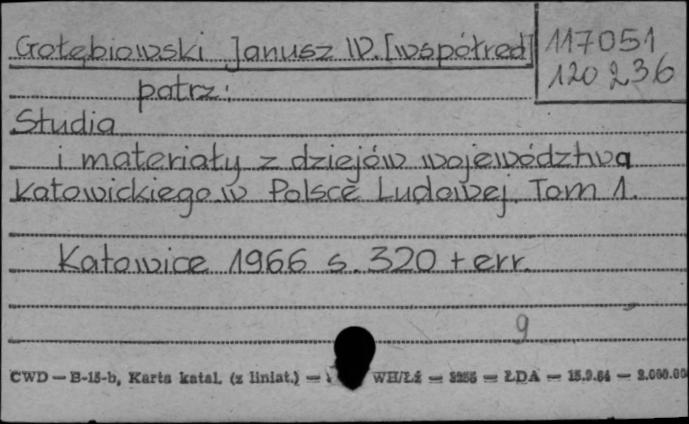 Gołębiowski Janusz W. [współred]
117051
120236
patrz:
Studia
i materiały z dziejów województwa
katowickiego w Polsce Ludowej. Tom 1.
Katowice 1966 s. 320 + err.
9
CWD — B-15-b, Karta katal. (z liniat.) — WH/Łź — 3256 — ŁDA — 15.9.64 — 2.000.00